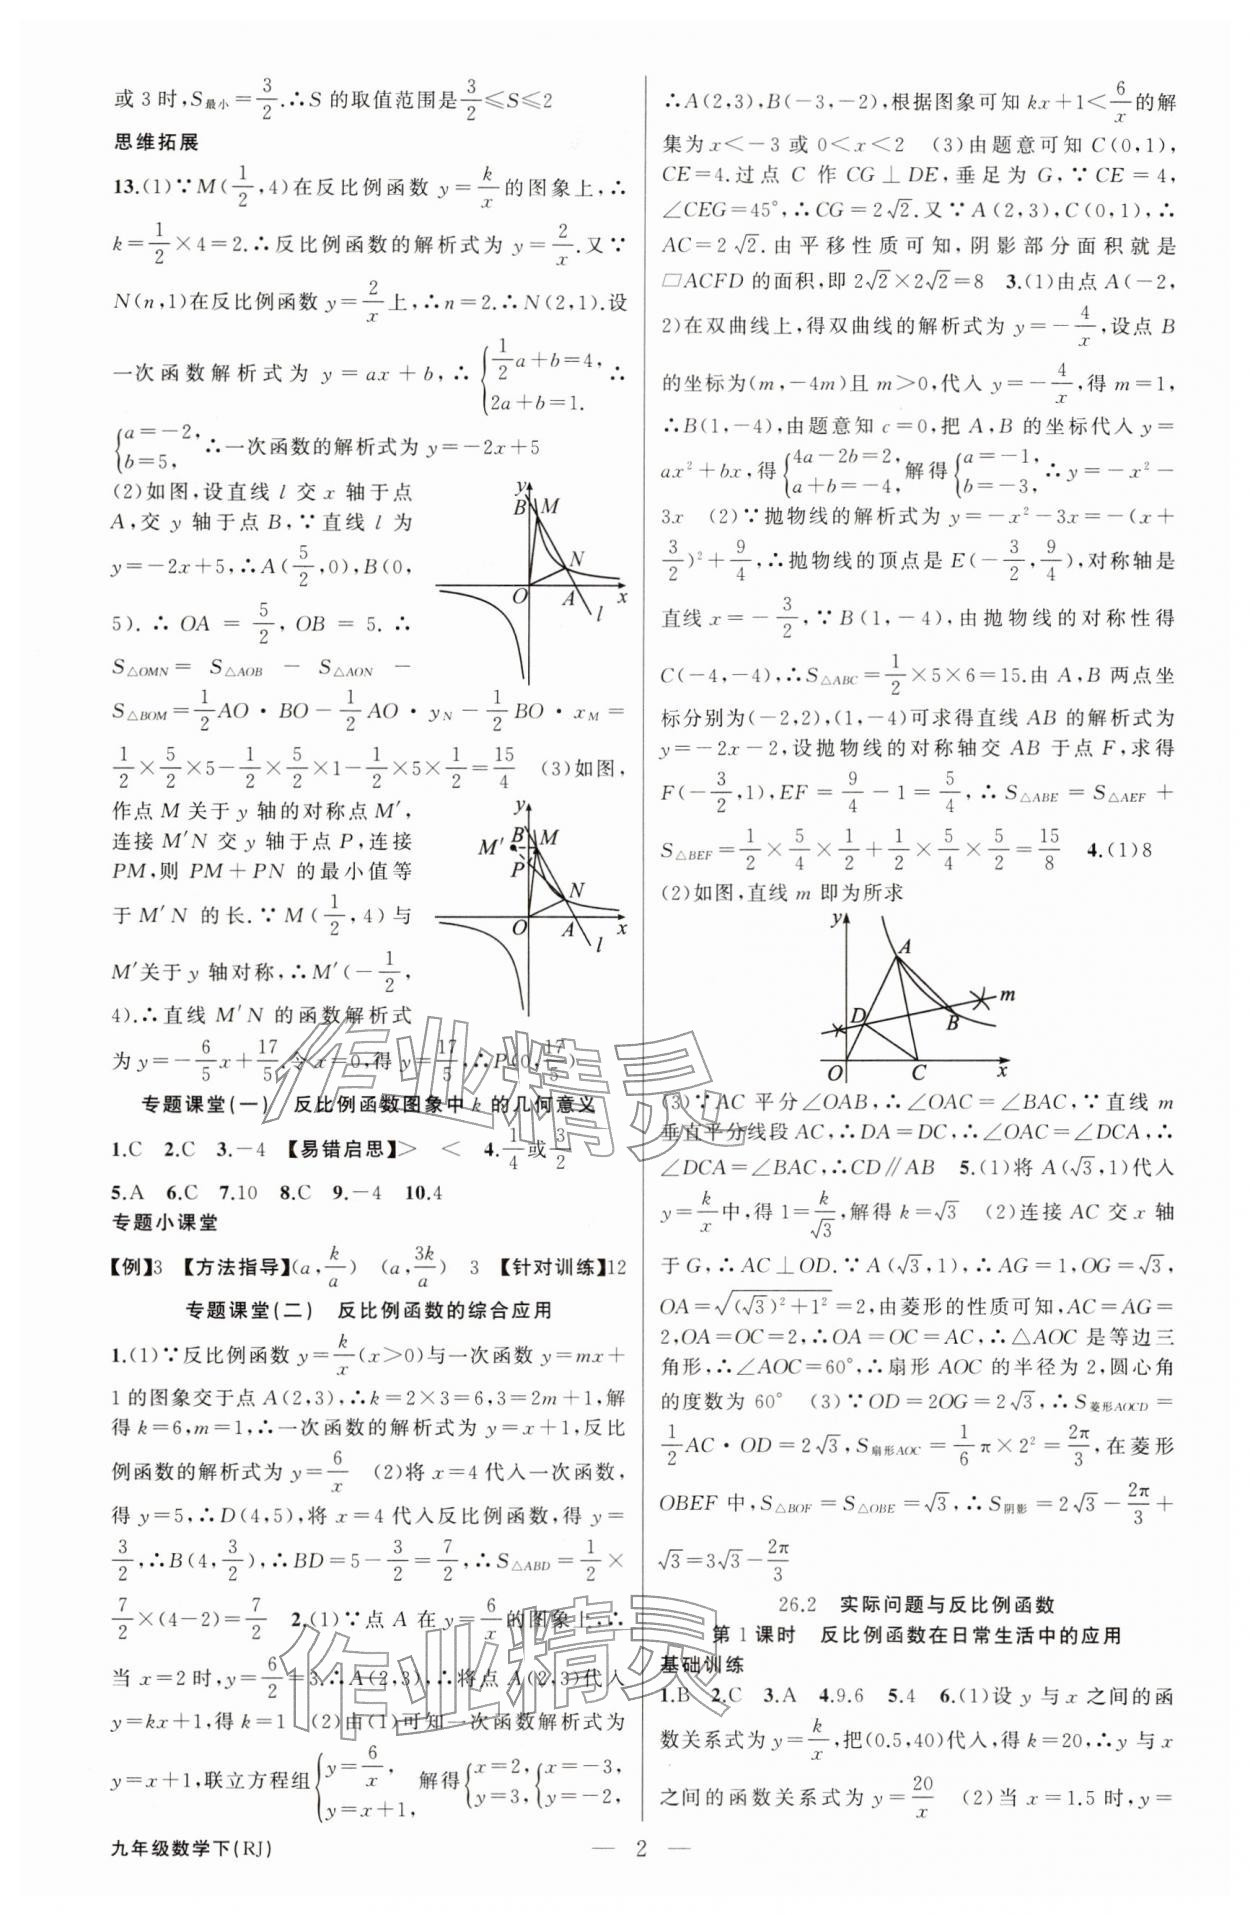 或 3 时,S最小=3/2.∴S 的取值范围是3/2≤S≤2
思维拓展
13.(1)∵M(1/2,4)在反比例函数 y=k/x的图象上,∴
k=1/2×4=2.∴反比例函数的解析式为 y=2/x.又∵
N(n,1)在反比例函数 y=2/x上,∴n=2.∴N(2,1).设
一次函数解析式为 y=ax+b,∴{1/2a+b=4, 2a+b=1. ∴
{a=-2, b=5, ∴一次函数的解析式为 y=-2x+5
(2)如图,设直线 l 交 x 轴于点
A,交 y 轴于点 B,∵直线 l 为
y=-2x+5,∴A(5/2,0),B(0,
5).∴OA=5/2,OB=5.∴
S△OMN=S△AOB-S△AON-
S△BOM=1/2AO·BO-1/2AO·yN-1/2BO·xM=
1/2×5/2×5-1/2×5/2×1-1/2×5×1/2=15/4 (3)如图,
作点 M 关于 y 轴的对称点 M′,
连接 M′N 交 y 轴于点 P,连接
PM,则 PM+PN 的最小值等
于 M′N 的长.∵M(1/2,4)与
M′关于 y 轴对称,∴M′(-1/2,
4).∴直线 M′N 的函数解析式
为 y=-6/5x+17/5.令 x=0,得 y=17/5,∴P(0,17/5)
y
B
M
N
O
A
l
x
y
B
M′
M
P
N
O
A
l
x
专题课堂(一) 反比例函数图象中 k 的几何意义
1.C 2.C 3.-4 【易错启思】> < 4.1/4或3/2
5.A 6.C 7.10 8.C 9.-4 10.4
专题小课堂
【例】3 【方法指导】(a,k/a) (a,3k/a) 3 【针对训练】12
专题课堂(二) 反比例函数的综合应用
1.(1)∵反比例函数 y=k/x(x>0)与一次函数 y=mx+
1 的图象交于点 A(2,3),∴k=2×3=6,3=2m+1,解
得 k=6,m=1,∴一次函数的解析式为 y=x+1,反比
例函数的解析式为 y=6/x (2)将 x=4 代入一次函数,
得 y=5,∴D(4,5),将 x=4 代入反比例函数,得 y=
3/2,∴B(4,3/2),∴BD=5-3/2=7/2,∴S△ABD=1/2×
7/2×(4-2)=7/2 2.(1)∵点 A 在 y=6/x的图象上,∴
当 x=2 时,y=6/2=3,∴A(2,3),∴将点 A(2,3)代入
y=kx+1,得 k=1 (2)由(1)可知一次函数解析式为
y=x+1,联立方程组{y=6/x, y=x+1, 解得{x=2, y=3, {x=-3, y=-2,
∴A(2,3),B(-3,-2),根据图象可知 kx+1<6/x的解
集为 x<-3 或 0<x<2 (3)由题意可知 C(0,1),
CE=4.过点 C 作 CG⊥DE,垂足为 G,∵CE=4,
∠CEG=45°,∴CG=2√2.又∵A(2,3),C(0,1),∴
AC=2√2.由平移性质可知,阴影部分面积就是
□ACFD 的面积,即 2√2×2√2=8 3.(1)由点 A(-2,
2)在双曲线上,得双曲线的解析式为 y=-4/x,设点 B
的坐标为(m,-4m)且 m>0,代入 y=-4/x,得 m=1,
∴B(1,-4),由题意知 c=0,把 A,B 的坐标代入 y=
ax²+bx,得{4a-2b=2, a+b=-4, 解得{a=-1, b=-3, ∴y=-x²-
3x (2)∵抛物线的解析式为 y=-x²-3x=-(x+
3/2)²+9/4,∴抛物线的顶点是 E(-3/2,9/4),对称轴是
直线 x=-3/2,∵B(1,-4),由抛物线的对称性得
C(-4,-4),∴S△ABC=1/2×5×6=15.由 A,B 两点坐
标分别为(-2,2),(1,-4)可求得直线 AB 的解析式为
y=-2x-2,设抛物线的对称轴交 AB 于点 F,求得
F(-3/2,1),EF=9/4-1=5/4,∴S△ABE=S△AEF+
S△BEF=1/2×5/4×1/2+1/2×5/4×5/2=15/8 4.(1)8
(2)如图,直线 m 即为所求
y
A
m
D
B
O
C
x
(3)∵AC 平分∠OAB,∴∠OAC=∠BAC,∵直线 m
垂直平分线段 AC,∴DA=DC,∴∠OAC=∠DCA,∴
∠DCA=∠BAC,∴CD∥AB 5.(1)将 A(√3,1)代入
y=k/x中,得 1=k/√3,解得 k=√3 (2)连接 AC 交 x 轴
于 G,∴AC⊥OD.∵A(√3,1),∴AG=1,OG=√3,
OA=√((√3)²+1²)=2,由菱形的性质可知,AC=AG=
2,OA=OC=2,∴OA=OC=AC,∴△AOC 是等边三
角形,∴∠AOC=60°,∴扇形 AOC 的半径为 2,圆心角
的度数为 60° (3)∵OD=2OG=2√3,∴S菱形AOCD=
1/2AC·OD=2√3,S扇形AOC=1/6π×2²=2π/3,在菱形
OBEF 中,S△BOF=S△OBE=√3,∴S阴影=2√3-2π/3+
√3=3√3-2π/3
26.2 实际问题与反比例函数
第 1 课时 反比例函数在日常生活中的应用
基础训练
1.B 2.C 3.A 4.9.6 5.4 6.(1)设 y 与 x 之间的函
数关系式为 y=k/x,把(0.5,40)代入,得 k=20,∴y 与 x
之间的函数关系式为 y=20/x (2)当 x=1.5 时,y=
九年级数学下(RJ)
— 2 —
作业精灵
作业精灵